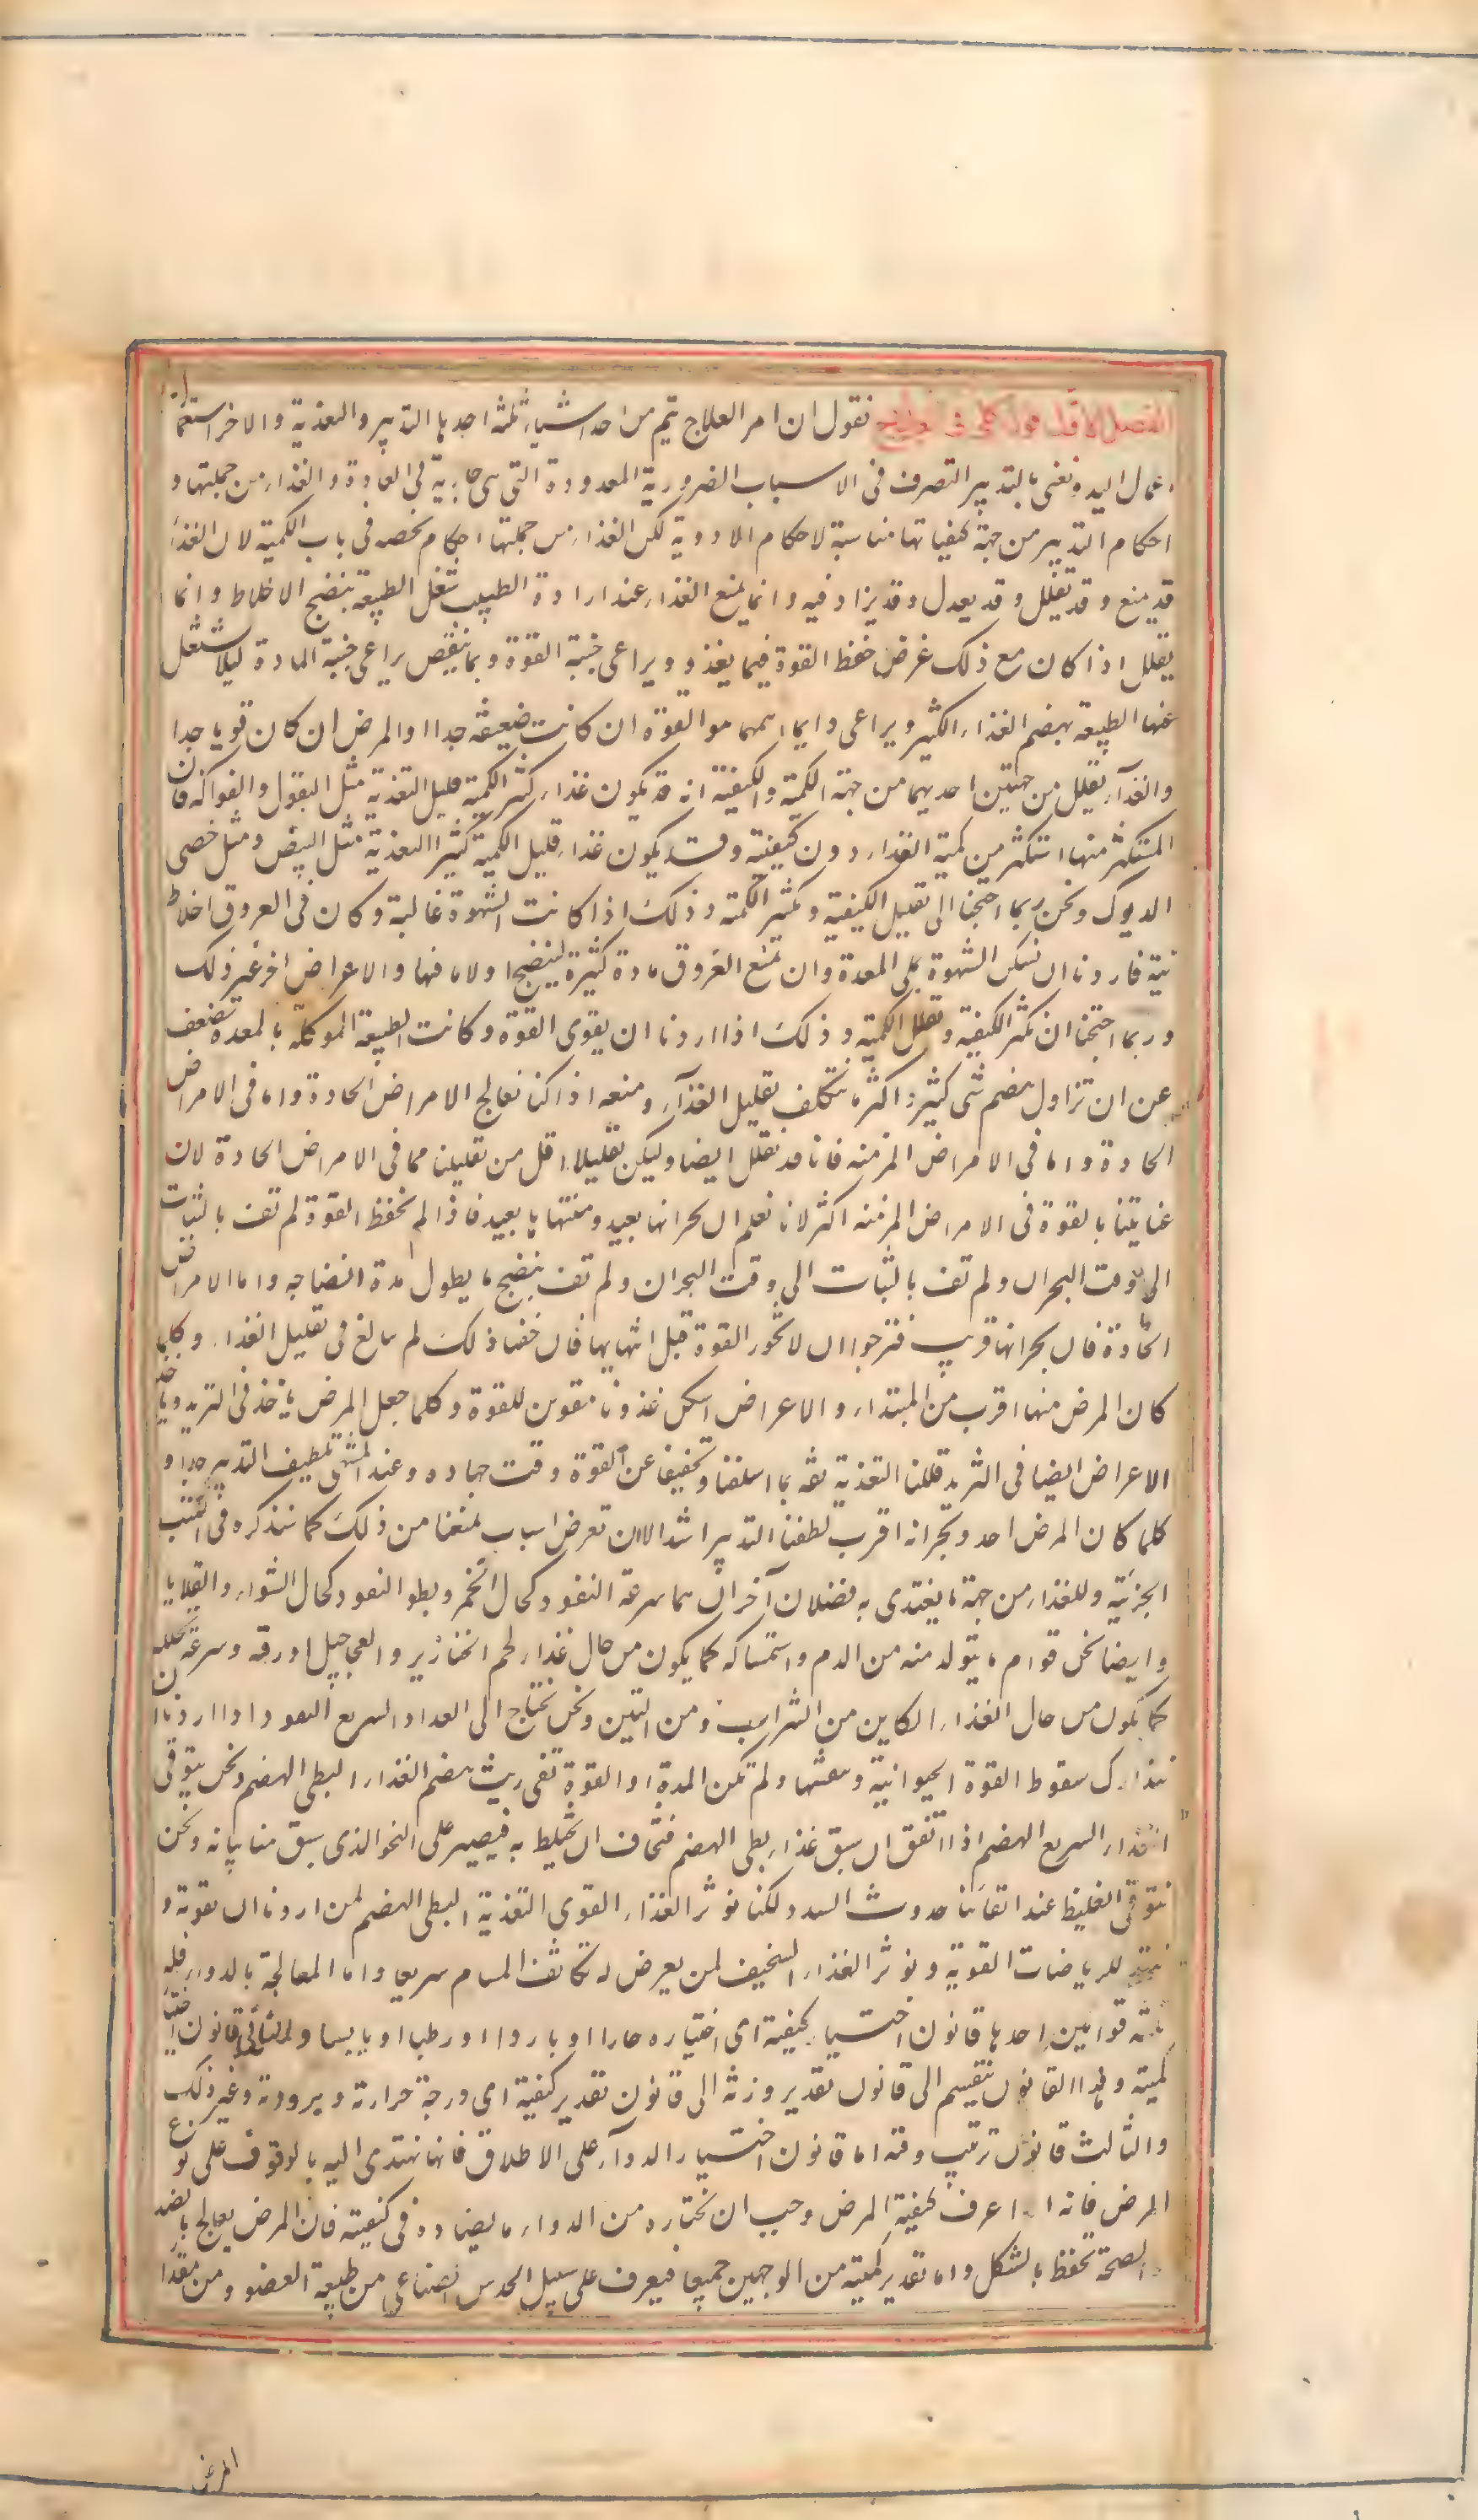 الفصل الاول قول كلى فى العلاج نقول ان امر العلاج يتم من احد اشياء ثلثه احدها التدبير والتغذية والاخر استعما
اعمال اليد ونعنى بالتدبير التصرف فى الاسباب الضرورية المعدودة التى هى جارية فى العادة والغذاء من جملتها و
احكام التدبير من جهة كيفياتها مناسبة لاحكام الادوية لكن الغذاء من جملتها احكام تخصه فى باب الكمية لان الغذاء
قد يمنع وقد يقلل وقد يعدل وقد يزاد فيه وانما يمنع الغذاء عند ارادة الطبيب شغل الطبيعة بنضج الاخلاط وانما
يقلل اذا كان مع ذلك غرض حفظ القوة فيما يغذو ويراعى جنبة القوة وبما ينقص يراعى جنبة المادة ليلا تشتغل
عنها الطبيعة بهضم الغذاء الكثير ويراعى دايما اهمهما هو القوة ان كانت ضعيفه جدا او المرض ان كان قويا جدا
والغذآء يقلل من جهتين احديهما من جهة الكمية والكيفية انه قد يكون غذاء كثير الكمية قليل التغذية مثل البقول والفواكه فان
المستكثر منها استكثر من كمية الغذاء دون كيفيته وقد يكون غذاء قليل الكمية كثير التغذية مثل البيض ومثل خصى
الديوك ونحن ربما احتجنا الى تقليل الكيفية وتكثير الكمية وذلك اذا كانت الشهوة غالبة وكان فى العروق اخلاط
نية فاردنا ان نسكن الشهوة بملى المعدة وان نمنع العروق مادة كثيرة لينضج اولا ما فيها والاعراض اخر غير ذلك
وربما احتجنا ان نكثر الكيفية ونقلل الكمية وذلك اذا اردنا ان يقوى القوة وكانت الطبيعة الموكلة بالمعدة تضعف
عن ان تزاول هضم شى كثير واكثر ما نتكلف تقليل الغذآء ومنعه اذا كنا نعالج الامراض الحادة واما فى الامراض
الحادة واما فى الامراض المزمنه فانا قد نقلل ايضا وليكن تقليلا اقل من تقليلنا مما فى الامراض الحادة لان
عنايتنا بالقوة فى الامراض المزمنه اكثر لانا نعلم ان بحرانها بعيد ومنتهاها بعيد فاذا لم نحفظ القوة لم تف بالثبات
الى وقت البحران ولم تف بالثبات الى وقت البحران ولم تف بنضج ما يطول مدة انضاجه واما الامراض
الحادة فان بحرانها قريب فنرجوا ان لا تخور القوة قبل انتهايها فان خفنا ذلك لم نبالغ فى تقليل الغذاء وكلما
كان المرض منها اقرب من المبتداء والاعراض اسكن غذونا مقوين للقوة وكلما جعل المرض ياخذ فى التزيد وياخذ
الاعراض ايضا فى التزيد قللنا التغذية ثقه بما اسلفنا وتخفيفا عن القوة وقت جهاده وعند المنتهى تلطيف التدبير جدا و
كلما كان المرض احد وبحرانه اقرب لطفنا التدبير اشد الا ان تعرض اسباب تمنعنا من ذلك كما سنذكره فى الكتب
الجزئية وللغذاء من جهة ما يغتذى به فضلان آخران هما سرعة النفود كحال الخمر وبطو النفود كحال الشواء والقلايا
وايضا نحن قوام ما يتولد منه من الدم واستمساكه كما يكون من حال غذاء لحم الخنازير والعجاجيل او رقته وسرعة تحلله
كما يكون من حال الغذاء الكاين من الشراب ومن التين ونحن نحتاج الى الغذاء السريع النفود اذا اردنا ان
نتدارك سقوط القوة الحيوانية ونعشها ولم تكن المدة او القوة تفى ريث هضم الغذاء البطى الهضم ونحن نتوقى
الغذاء السريع الهضم اذا اتفق ان سبق غذاء بطى الهضم فنخاف ان تختلط به فيصير على النحو الذى سبق منا بيانه ونحن
نتوقى الغليظ عند اتقائنا حدوث السدد لكنا نوثر الغذاء القوى التغذية البطى الهضم لمن اردنا ان نقويه و
للرياضات القوية ونوثر الغذاء السخيف لمن يعرض له تكاثف المسام سريعا واما المعالجة بالدواء فله
ثلثه قوانين احدها قانون اختيار كيفيته اى اختياره حارا او باردا او رطبا او يابسا والثانى قانون اختيار
كميته وهذا القانون ينقسم الى قانون تقدير وزنه الى قانون تقدير كيفية اى درجة حرارته وبرودته وغير ذلك
والثالث قانون ترتيب وقته اما قانون اختيار الدوآء على الاطلاق فانما نهتدى اليه بالوقوف على نوع
المرض فانه اذا عرف كيفية المرض وجب ان نختاره من الدواء ما يضاده فى كيفيته فان المرض يعالج بالضد
والصحة تحفظ بالشكل واما تقدير كميته من الوجهين جميعا فيعرف على سبيل الحدس الصناعى من طبيعة العضو ومن مقدار
المرض